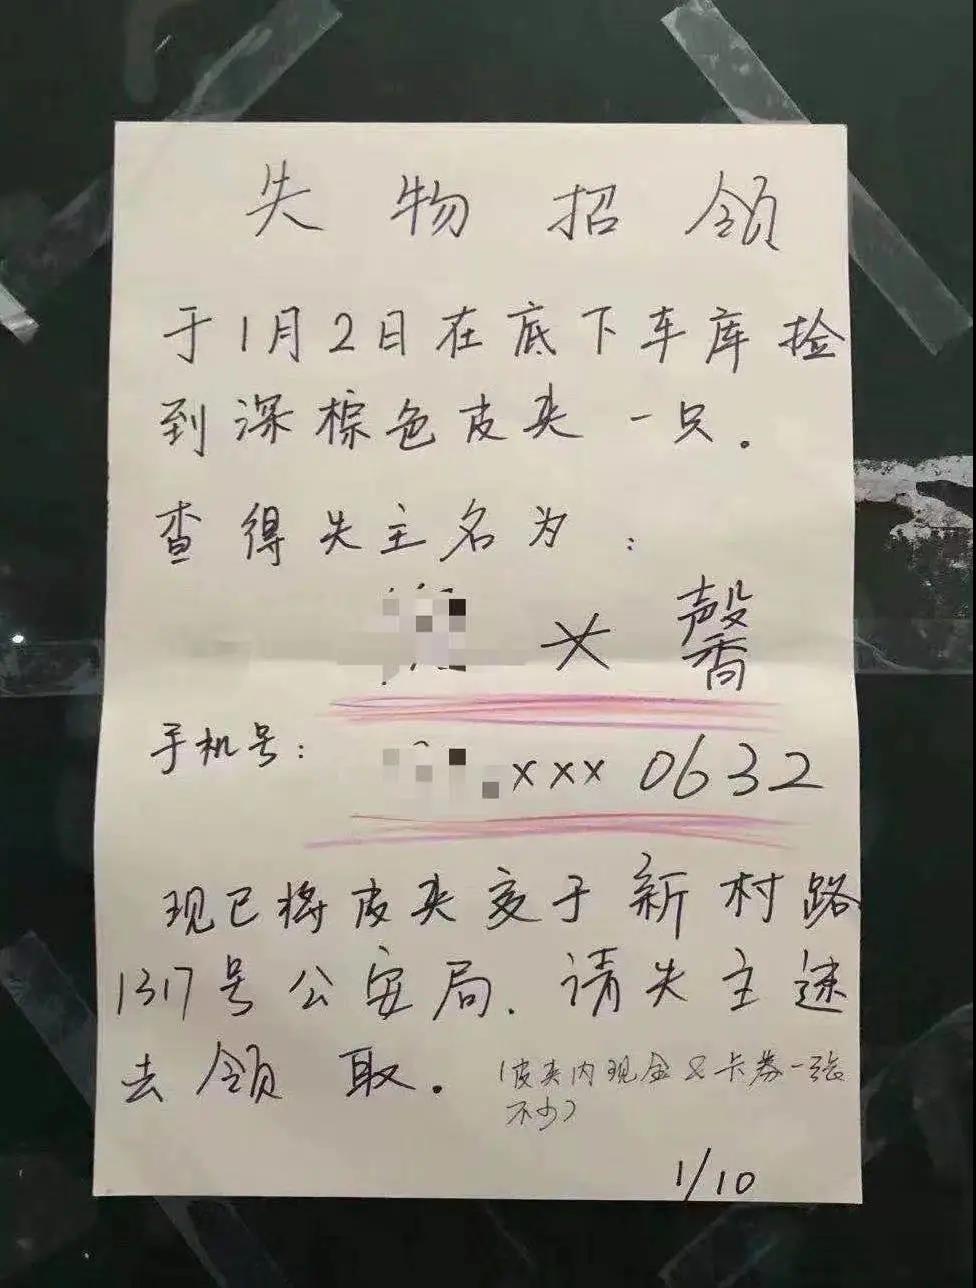 失物招领
于1月2日在底下车库捡
到深棕色皮夹一只.
查得失主名为:
×馨
手机号: xxx 0632
现已将皮夹交于新村路
1317号公安局.请失主速
去领取.
(皮夹内现金及卡券一张
不少)
1/10